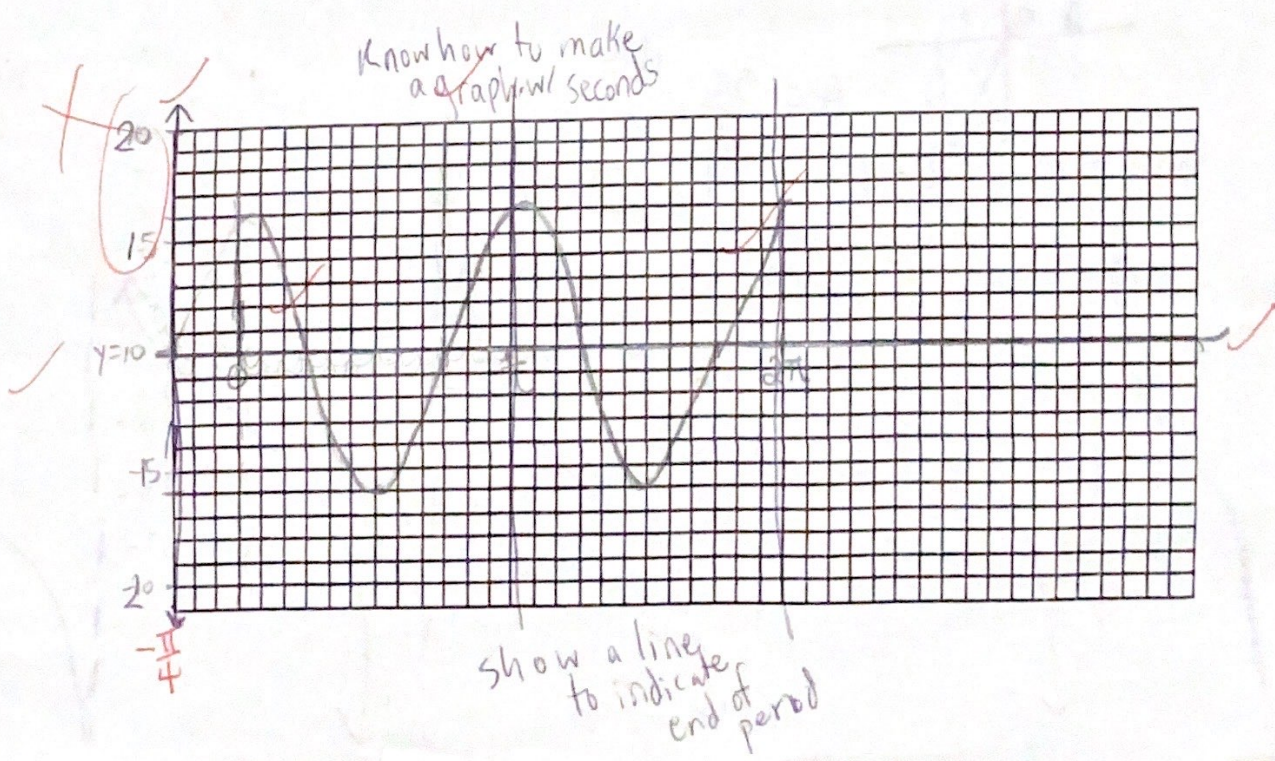 Know how to make
a graph w/ seconds
20
15
y=10
0
π
2π
-15
-20
-π/4
show a line
to indicate
end of
period